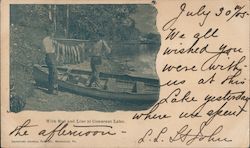 July 30 '05
We all
wished you
were with
us at this
Lake yesterday
where we spent
the afternoon -
L. L. St John
With Rod and Line at Conneaut Lake.